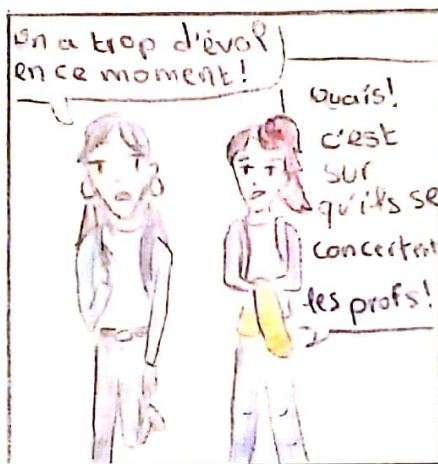 On a trop d'éval
en ce moment!
Ouais!
c'est
sur
qu'ils se
concertent
les profs!